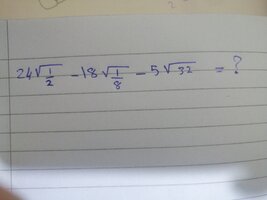 24√1/2 - 18√1/8 - 5√32 = ?